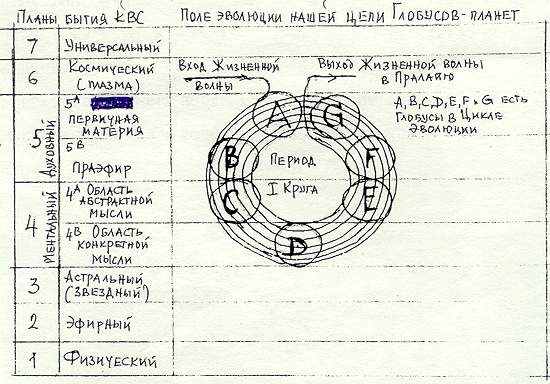 Планы бытия КВС
Поле эволюции нашей цепи Глобусов-планет
7
Универсальный
6
Космический
(плазма)
Вход Жизненной
волны
Выход Жизненной волны
в Пралайю
5
Духовный
5А
Первичная
материя
5В
Праэфир
A, B, C, D, E, F и G есть
Глобусы в Цикле
эволюции
A
G
B
F
C
E
D
Период
I Круга
4
Ментальный
4А Область
абстрактной
мысли
4В Область
конкретной
мысли
3
Астральный
(звездный)
2
Эфирный
1
Физический